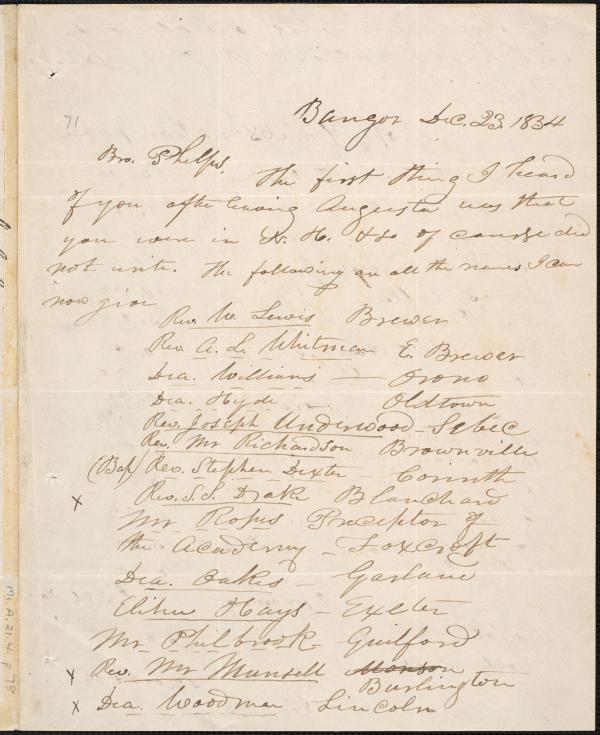 Bangor Dec. 23. 1834
71
Bro. Phelps,
The first thing I heard
of you after leaving Augusta was that
you were in N. H. & so of course did
not write. The following are all the names I can
now give
Rev. W. Lewis Brewer
Rev. A. L. Whitman E. Brewer
Dea. Williams — Orono
Dea. Hyde — Oldtown
Rev. Joseph Underwood - Sebec
Rev. Mr Richardson Brownville
(Bap) Rev. Stephen Dexter - Corinth
x Rev. S. S. Drake Blanchard
Mr Ropes Preceptor of
the Academy - Foxcroft
Dea. Oakes - Garland
Elihu Hays - Exeter
Mr Philbrook - Guilford
x Rev. Mr Munsell Monson
Burlington
x Dea. Woodman Lincoln
Ms. A. 21. 4 p. 78